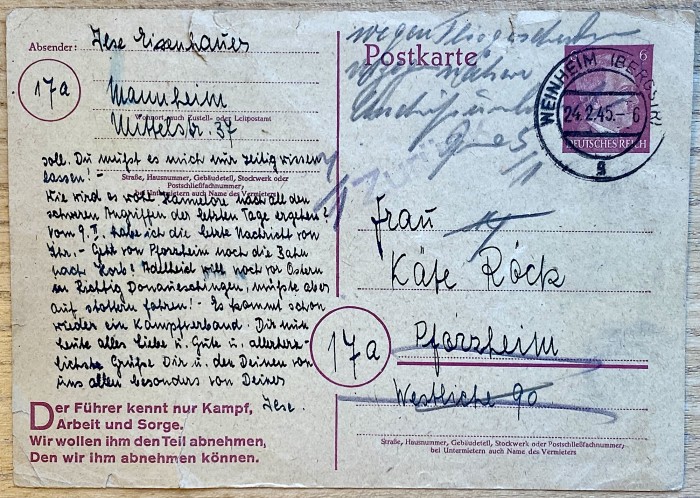 Absender: Ilse Eisenhauer
17a
Mannheim
Wohnort, auch Zustell- oder Leitpostamt
Mittelstr. 37
Straße, Hausnummer, Gebäudeteil, Stockwerk oder
Postschließfachnummer,
bei Untermietern auch Name des Vermieters
soll. Du müßst es mich nur zeitig wissen
lassen! -
Wie wird es wohl Hannelore nach all den
schweren Angriffen der letzten Tage ergehen?
Vom 9. II. habe ich die letzte Nachricht von
Ihr. - Geht von Pforzheim noch die Bahn
nach Horb? Adelheid will noch vor Ostern
in Richtig Donaueschingen, müßte aber
auf stottern fahren! - Es kommt schon
wieder ein Kampfverband. Dir nun
heute alles Liebe u. Gute u. allerherz-
lichste Grüße Dir u. den Deinen von
uns allen besonders von Deiner
Ilse.
Der Führer kennt nur Kampf,
Arbeit und Sorge.
Wir wollen ihm den Teil abnehmen,
Den wir ihm abnehmen können.
wegen
Postkarte
6
WEINHEIM (BERGSTR)
24.2.45.- 6
DEUTSCHES REICH
a
Frau
Käte Röck
17a
Pforzheim
Westliche 90
Straße, Hausnummer, Gebäudeteil, Stockwerk oder Postschließfachnummer,
bei Untermietern auch Name des Vermieters